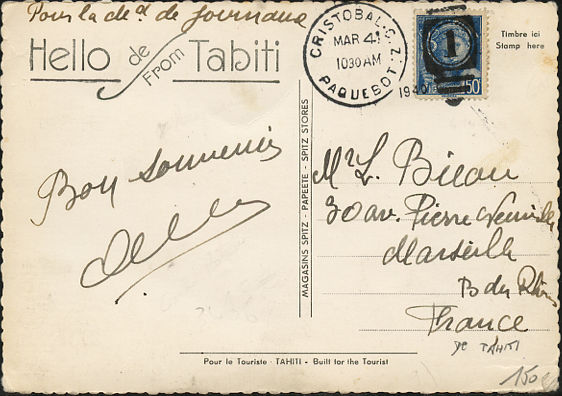 Pour la de
Hello de From Tahiti
CRISTOBAL, C.Z.
MAR 4
1030 AM
PAQUEBOT
1940
1
50
Timbre ici
Stamp here
Bon souvenir
MAGASINS SPITZ - PAPEETE - SPITZ STORES
Mr L.
30 av. Pierre
Marseille
B du Rhône
France
de TAHITI
Pour le Touriste - TAHITI - Built for the Tourist
150